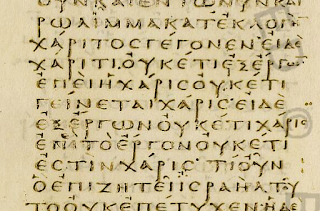 ΟΥΝΚΑΙΕΝΤΩΝΥΝΚΑΙ
ΡΩΛΙΜΜΑΚΑΤΕΚΛΟΓΗ
ΧΑΡΙΤΟΣΓΕΓΟΝΕΝΕΙΔΕ
ΧΑΡΙΤΙΟΥΚΕΤΙΕΞΕΡΓΩ
ΕΠΕΙΗΧΑΡΙΣΟΥΚΕΤΙ
ΓΕΙΝΕΤΑΙΧΑΡΙΣΕΙΔΕ
ΕΞΕΡΓΩΝΟΥΚΕΤΙΧΑΡΙΣ
ΕΠΕΙΤΟΕΡΓΟΝΟΥΚΕΤΙ
ΕΣΤΙΝΧΑΡΙΣΤΙΟΥΝ
ΟΕΠΙΖΗΤΕΙΙΣΡΑΗΛΤΟΥ
ΤΟΟΥΚΕΠΕΤΥΧΕΝΗΔΕ